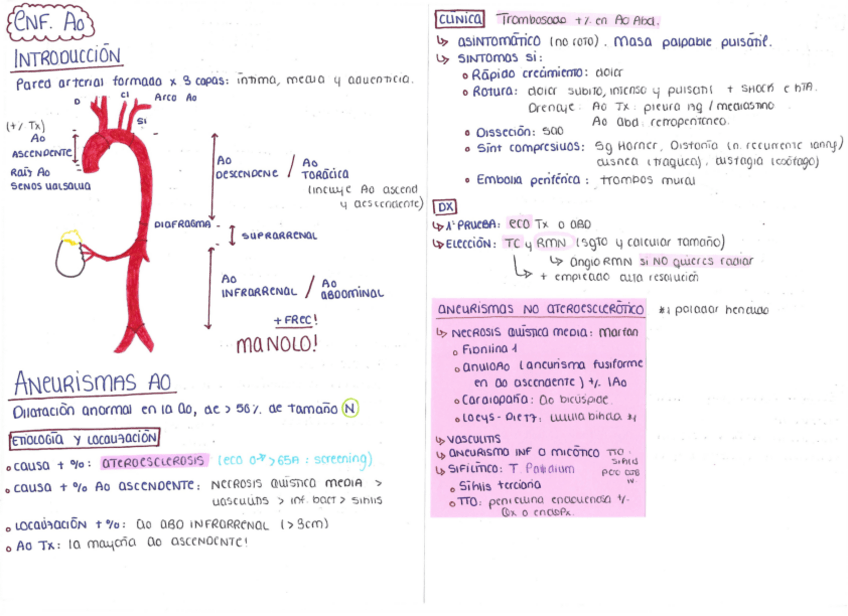 ENF. AO
INTRODUCCIÓN
Pared arterial formado x 3 capas: íntima, media y adventicia.
D CI Arco Ao
SI
(+/ Tx)
AO
ASCENDENTE
Raíz Ao
SENOS VALSALVA
AO
DESCENDENE / AO
TORÁCICA
(incluye Ao ascend
y descendente)
DIAFRAGMA
SUPRARRENAL
AO
INFRARRENAL / AO
ABDOMINAL
+FREC!
MANOLO!
ANEURISMAS AO
Dilatación anormal en la Ao, de > 50% de tamaño N
ETIOLOGÍA Y LOCALIZACIÓN
• CAUSA + %: ATEROESCLEROSIS (eco ♂ > 65A: screening)
• CAUSA + % AO ASCENDENTE: NECROSIS QUÍSTICA MEDIA >
vasculitis > inf. bact > sifilis
• LOCALIZACIÓN + %: AO ABD INFRARRENAL (>3cm)
• AO TX: la mayoría AO ASCENDENTE!
CLINICA Trombosado +/. en Ao Abd.
↳ ASINTOMÁTICO (no roto). Masa palpable pulsátil.
↳ SINTOMAS SI:
• Rápido crecimiento: dolor
• Rotura: dolor súbito, intenso y pulsatil + SHOCK e hTA.
Drenaje. Ao Tx: pleura izq / mediastino
Ao abd. retroperitoneo.
• Disección: SAO
• Sint compresivos: Sg Horner, Disfonía (n. recurrente laring)
disnea (traquea), disfagia (esófago)
• Embolia periférica: trombos mural
DX
↳ 1ª PRUEBA: eco Tx o ABD
↳ ELECCIÓN: TC y RMN (sgto y calcular tamaño)
↳ angio RMN si NO quieres radiar
↳ + empleado alta resolución
ANEURISMAS NO ATEROESCLERÓTICO *1 paladar hendido
↳ NECROSIS QUÍSTICA MEDIA: Marfan
• Fibrilina 1
• AnuloAo (aneurisma fusiforme
en ao ascendente) +/. IAo
• Cardiopatía: Ao bicúspide.
• Loeys-Dietz: úvula bífida *1
↳ VASCULITIS
↳ ANEURISMO INF O MICÓTICO
↳ SIFILÍTICO: T Pallidium
• Sífilis terciaria
• TTO: penicilina endovenosa +/.
Qx o endoPx.